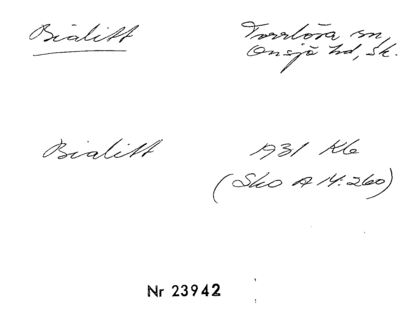 Bialitt Torrlösa sn,
Onsjö hd, Sk.
Bialitt 1931 Kb
(Sko A 14:260)
Nr 23942